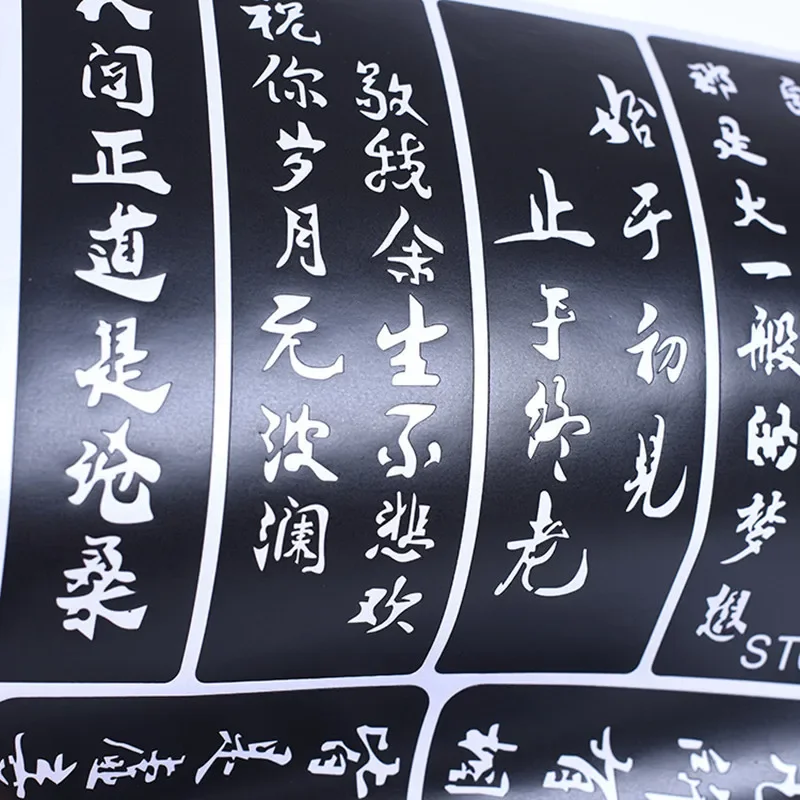 人间正道是沧桑
祝你岁月无波澜
敬我余生不悲欢
始于初见
止于终老
那是火一般的梦想